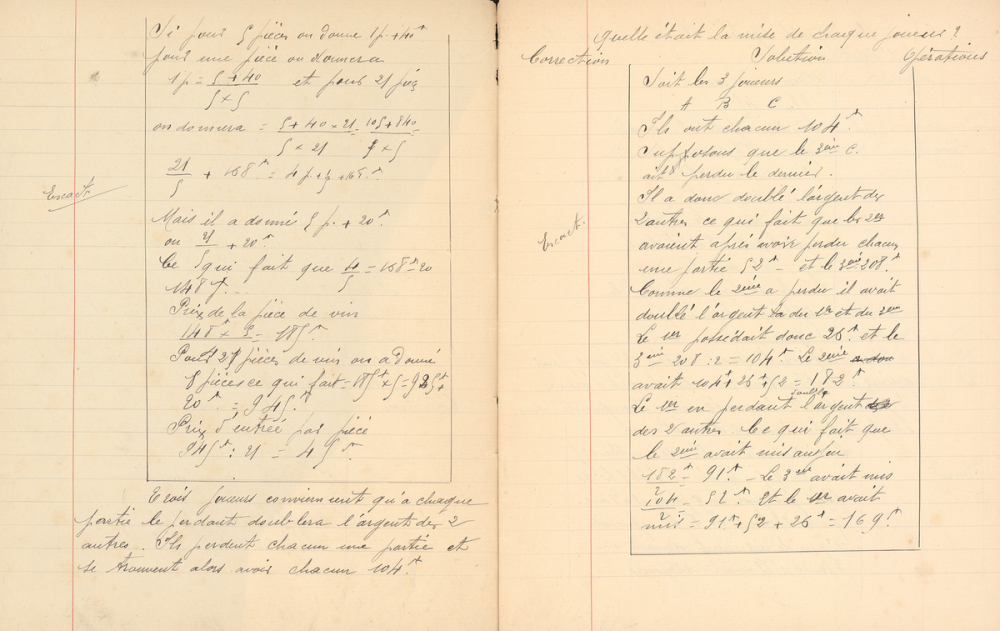 Si pour 5 pièces on donne 1 p. + 40f
pour une pièce on donnera
1 p = 5 + 40 / 5 x 5 et pour 21 piè
on donnera = 5 + 40 x 21 / 5 x 21 = 105 + 840 / 5 x 5
21 / 5 + 168f = 4 p. + 1/5 + 168f
Exact
Mais il a donné 5 p. + 20f
ou 21 / 5 + 20f
Ce qui fait que 4 / 5 = 168f - 20
148 f.
Prix de la pièce de vin
148f x 5 = 185f
Pour 21 pièces de vin on a donné
5 pièces ce qui fait = 185f x 5 = 925f +
20f = 945f
Prix d'entrée par pièce
945f : 21 = 45f
Trois joueurs conviennent qu'à chaque
partie le perdant doublera l'argent des 2
autres. Ils perdent chacun une partie et
se trouvent alors avoir chacun 104f
Quelle était la mise de chaque joueur ?
Correction Solution Opérations
Soit les 3 joueurs
A B C
Ils ont chacun 104f
Supposons que le 3ème C.
ait perdu le dernier.
Il a donc doublé l'argent des
2 autres ce qui fait que les 2
avaient après avoir perdu chacun
Exact.
une partie 52f - et le 3ème 208f
Comme le 2ème a perdu il avait
doublé l'argent du 1er et du 3ème
Le 1er possédait donc 26f et le
3ème 208 : 2 = 104f Le 2ème
avait 104f + 26f + 52 = 182f
Le 1er en perdant doubla l'argent
des 2 autres. Ce qui fait que
le 2ème avait mis au jeu
182 / 2 = 91f - Le 3ème avait mis
104 / 2 = 52f Et le 1er avait
mis = 91f + 52 + 26f = 169f